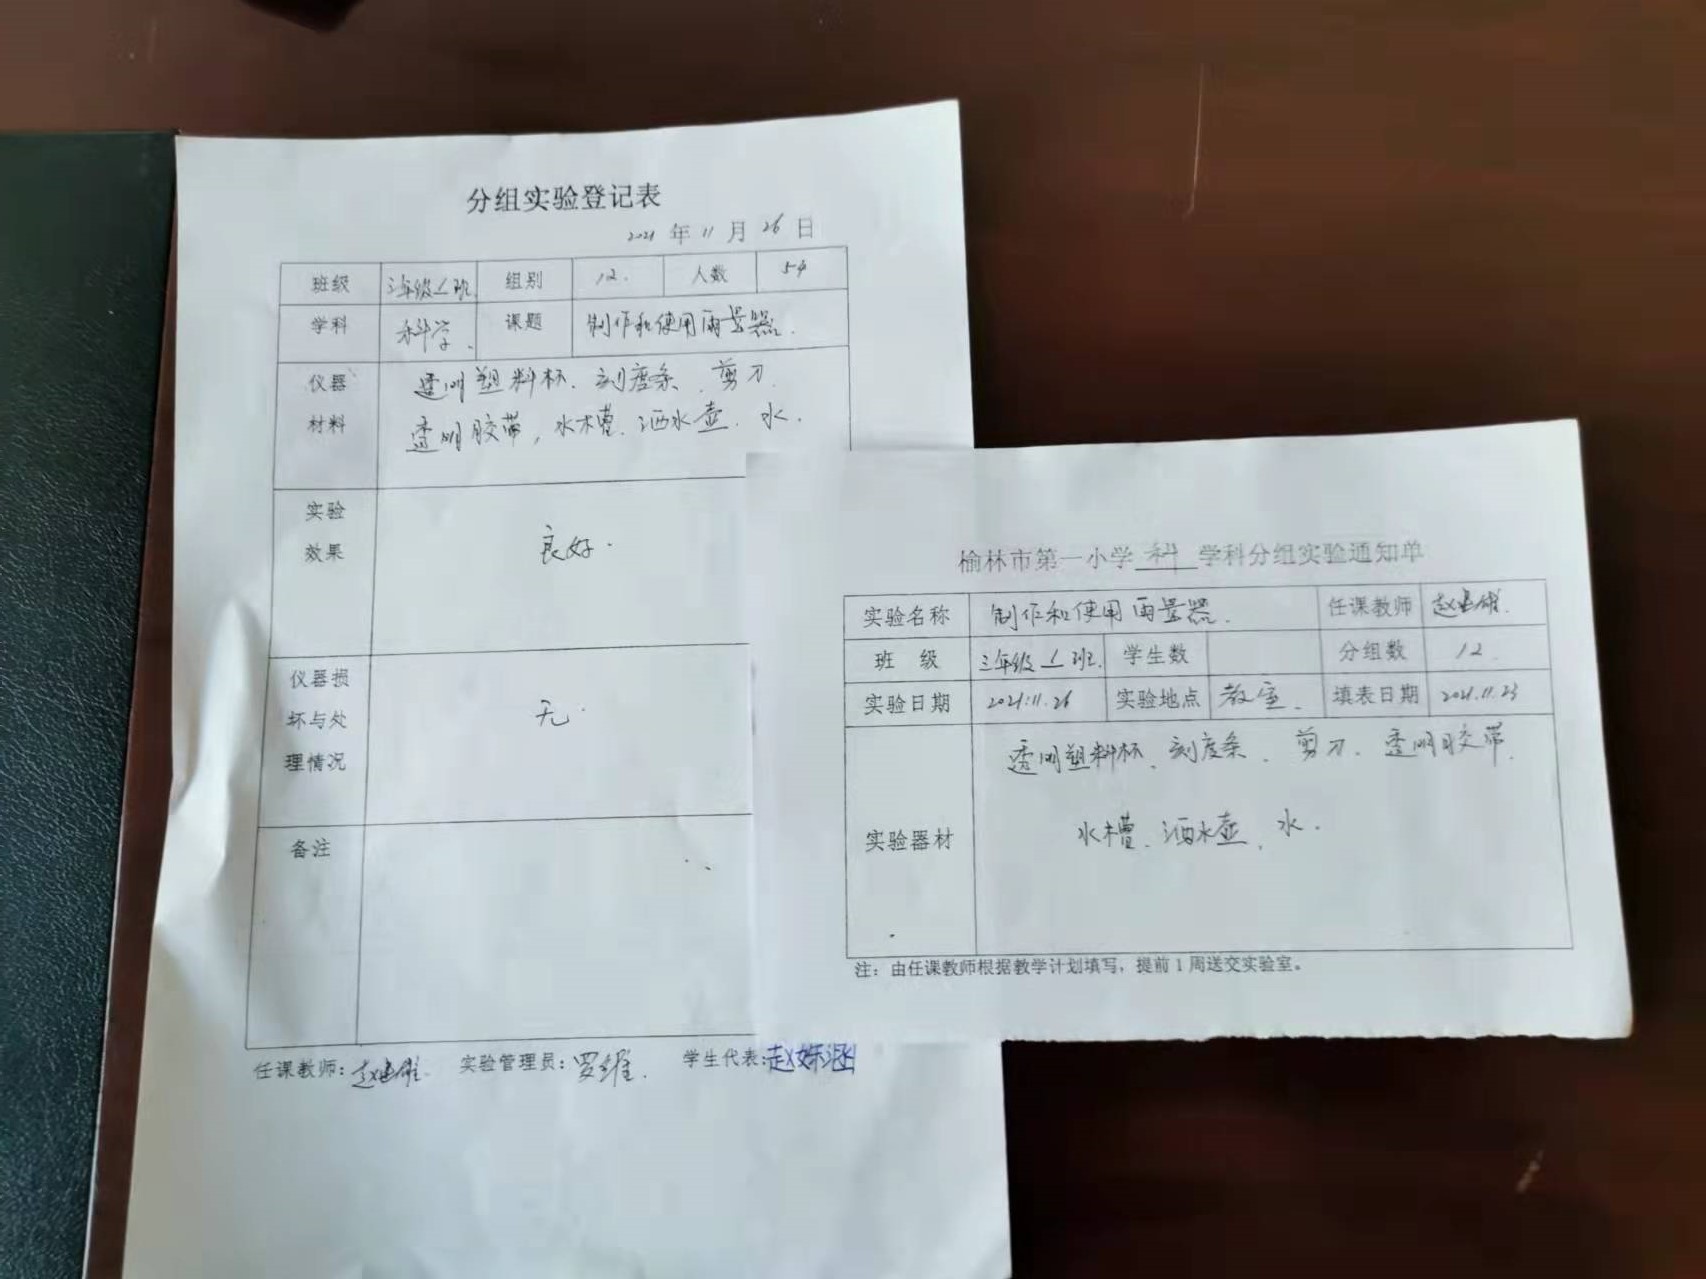 分组实验登记表
2021 年 11 月 26 日
班级 三年级 1 班 组别 12. 人数 54
学科 科学. 课题 制作和使用雨量器.
仪器 透明塑料杯. 刻度条. 剪刀.
材料 透明胶带, 水槽. 洒水壶. 水.
实验
效果 良好.
仪器损
坏与处 无.
理情况
备注
任课教师: 实验管理员: 罗维. 学生代表:
榆林市第一小学 科 学科分组实验通知单
实验名称 制作和使用雨量器. 任课教师
班 级 三年级 1 班. 学生数 分组数 12.
实验日期 2021.11.26 实验地点 教室. 填表日期 2021.11.23
透明塑料杯、刻度条、剪刀. 透明胶带.
实验器材 水槽、洒水壶、水.
注：由任课教师根据教学计划填写，提前 1 周送交实验室。